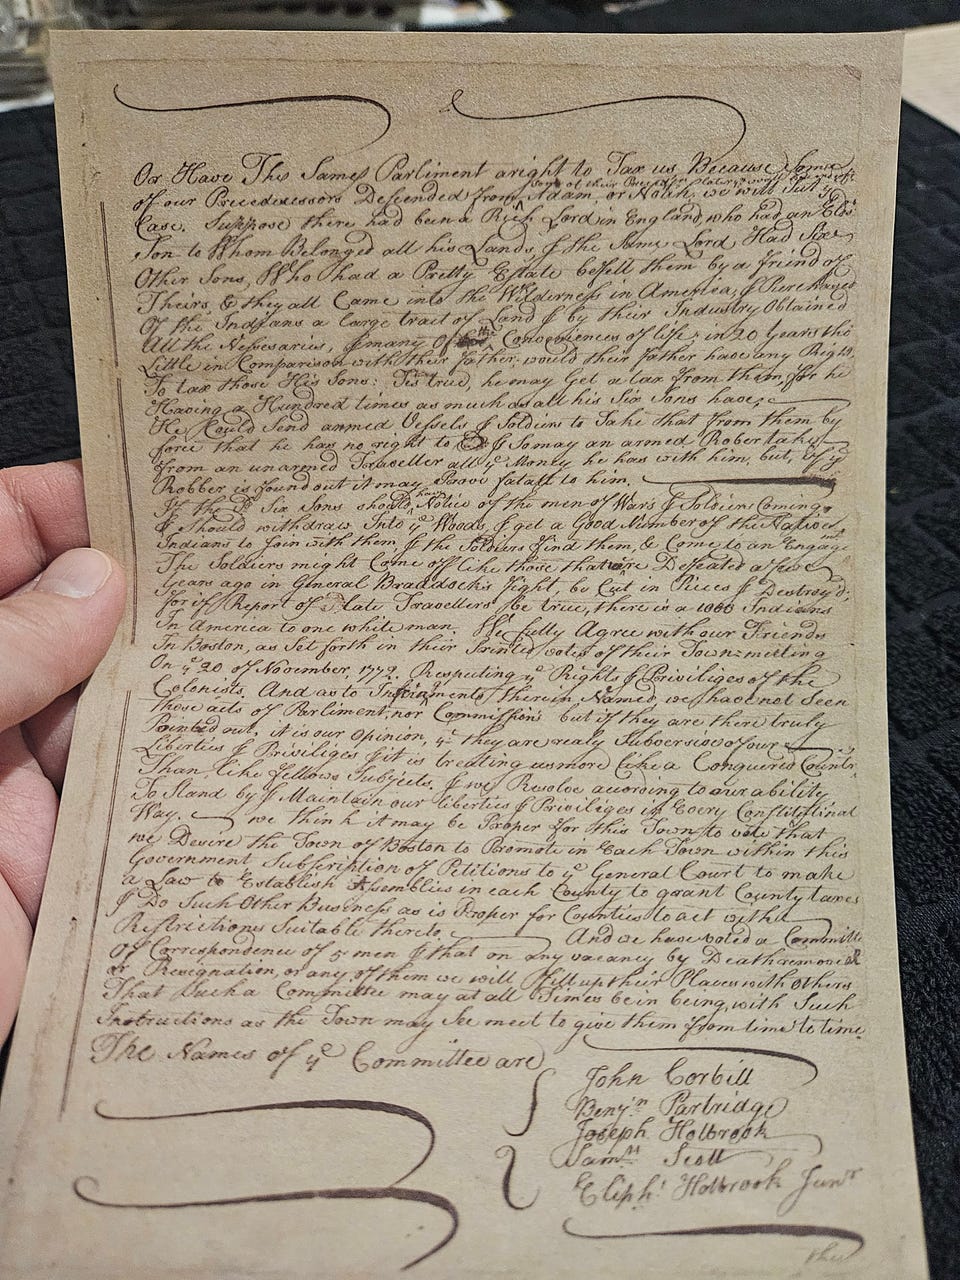 Or Have The Same Parliment aright to Tax us Because Some
of our Predecessors Decended from Adam, or Noah, we will Sut ye
Case. Suppose there had been a Rich Lord in England who had an Eldst
Son to Whom Belonged all his Lands, & the Same Lord Had Six
Other Sons, Who had a Pretty Estate befell them by a Friend of
Theirs & they all Came into the Wilderness in America, & Purchased
Of the Indians a large tract of Land & by their Industry Obtained
All the Nessesaries, & many Of the Conveniences of life, in 20 Years tho
Little in Comparison with their Father, would their father have any Right
To tax those His Sons: Tis trud, he may Get a tax from them, for he
Having a Hundred times as much as all his Six Sons have,
He Could Send armed Vessels & Soldiers to Take that from them by
force that he has no right to & Somay an armed Rober take
from an unarmed Traveller all ye Money he has with him, but, if ye
Robber is found out it may Prove fatall to him.
If the Six Sons should have Notice of the men of Wars & Soldiers Coming
& Should withdraw Into ye Woods, & get a Good Number of the Native
Indians to Join with them, & the Soldiers find them, & Come to an Engage
The Soldiers might Come of like those that were Defeated a few
Years ago in General Braddock's Fight, be Cut in Pieces & Destroy'd;
for if Report of Late Travellers be true, there is a 1000 Indians
In America to one white man. We fully Agree with our Friends
In Boston, as Set forth in their Printed votes of their Town-meeting
On ye 20 of November, 1772. Respecting ye Rights & Priviliges of the
Colonists. And as to Infringments therein Named, we have not Seen
those acts of Parliment, nor Commissions but if they are there truly
Pointed out, it is our Opinion, yt they are realy Subversive of our
Liberties & Priviliges & it is treating us more like a Conquered Countr
Than, like fellow Subjects. & we Resolve according to our ability
To Stand by & Maintain our liberties & Priviliges in Every Constitutinal
Way. we think it may be Proper for this Town to vote that
we Desire the Town of Boston to Promote in Each Town within this
Government Subscription of Petitions to ye General Court to make
a Law to Establish Assemblies in each County to grant County taxes
& Do Such Other Business as is Proper for Counties to act with
Restrictions Suitable thereto. And we have voted a Committe
Of Correspondence of 5 men & that on any vacancy by Death removeal
or Resignation, or any of them we will fill up their Places with Others
That Such a Committee may at all Times be in being, with Such
Instructions as the Town may See meet to give them from time to time
The Names of ye Committee are
John Corbill
Benjn Partridge
Joseph Holbrook
Samll Scott
Eliphl Holbrook Junr